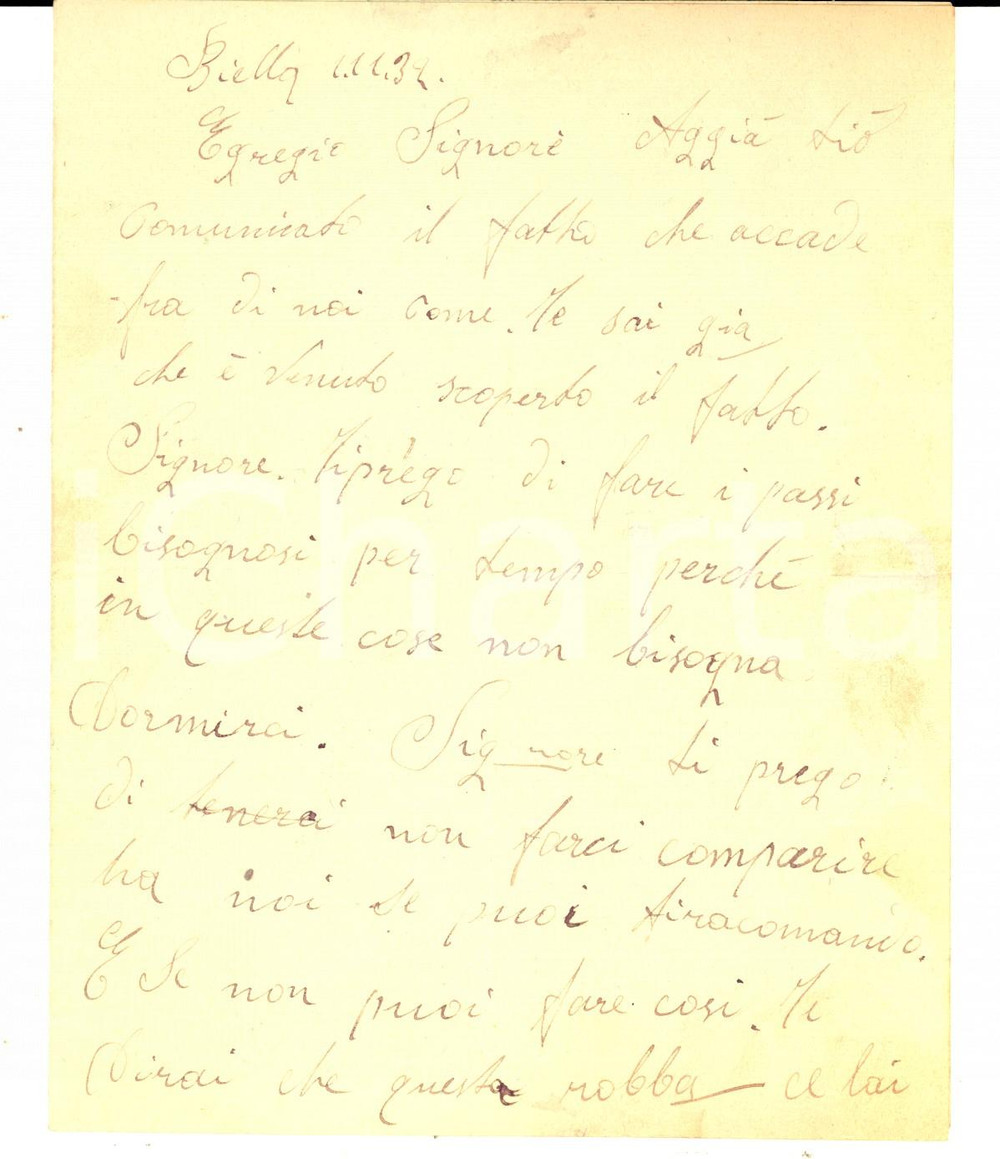 Biella 11.11.32.
Egregio Signore Aggià tiò
Comunicato il fatto che accade
fra di noi come. te sai già
che è venuto scoperto il fatto.
Signore. Tiprego di fare i passi
bisognosi per tempo perché
in queste cose non bisogna
Dormirci. Signore ti prego
di tenerci non farci comparire
ha noi se puoi tiracomando.
E Se non puoi fare cosi. Te
Dirai che questa robba ce lai
iCharta